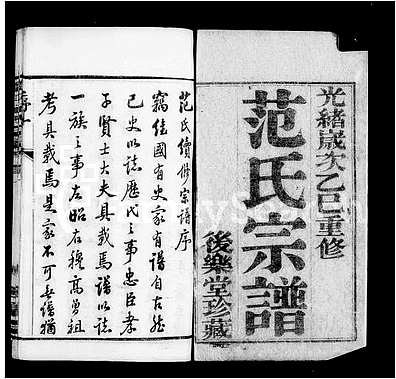 光緒歲次乙巳重修
范氏宗譜
後樂堂珍藏
范氏續修宗譜序
竊佳國有史家有譜自古然
已史以誌歷代之事忠臣孝
子賢士大夫具載焉譜以誌
一族之事左昭右穆高曾祖
考具載焉是家不可無譜猶